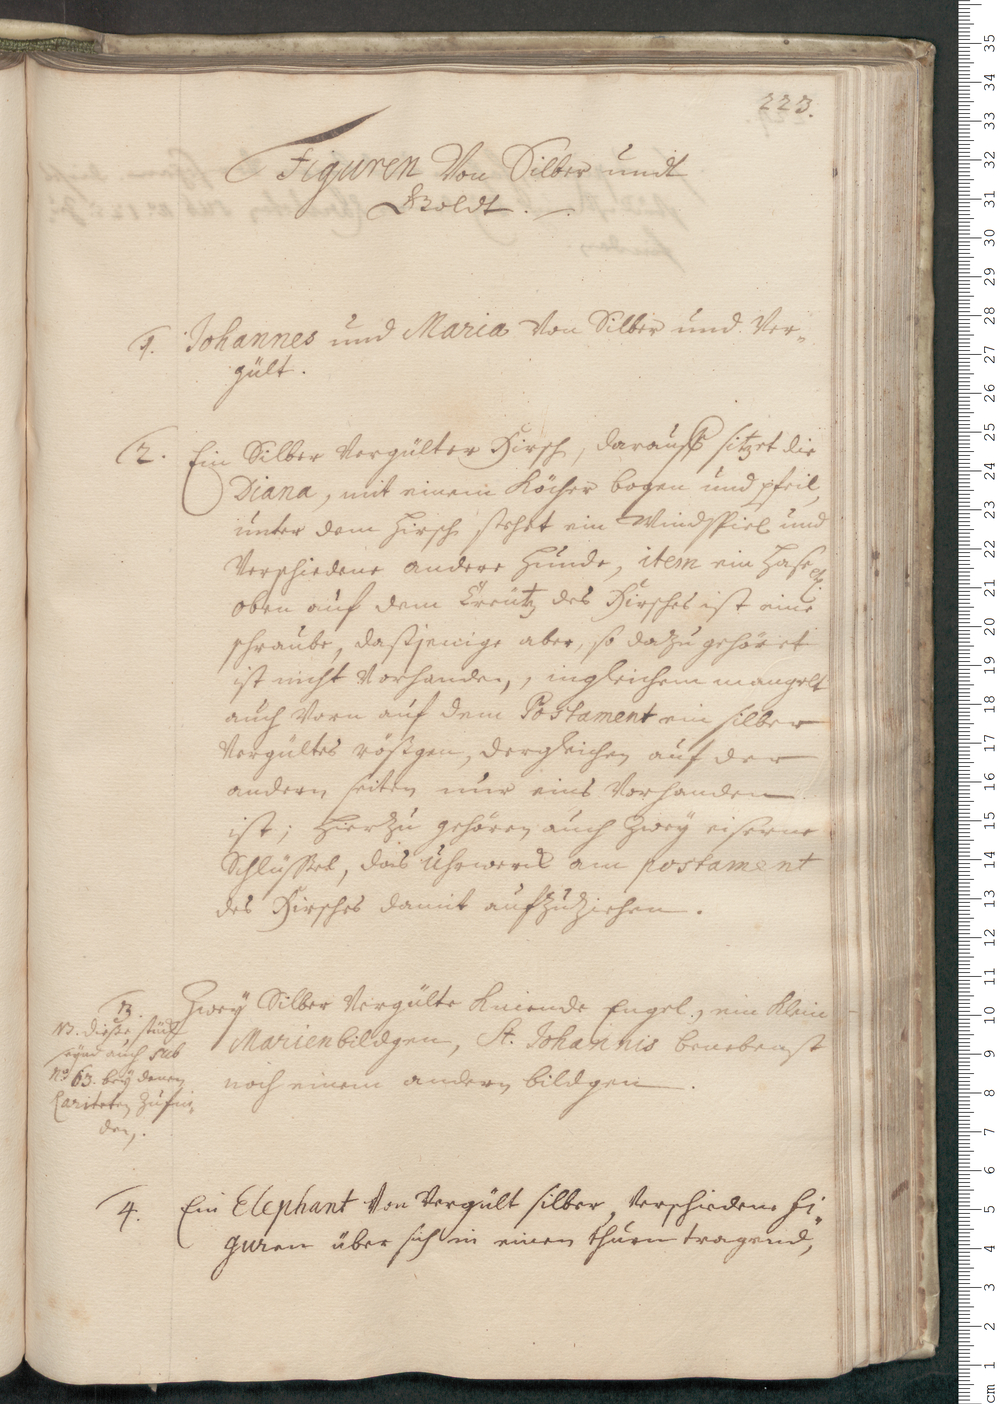 223.
Figuren Von Silber undt
Goldt.
1. Johannes und Maria Von Silber und Ver-
gült.
2. Ein Silber Vergülter Hirsch, darauff sitzet die
Diana, mit einem Köcher bogen und pfeil,
unter dem Hirsch stehet ein Windspiel und
Verschiedene andere Hunde, item ein Hase
oben auf dem Creutz des Hirsches ist eine
schraube, dasjenige aber, so dazu gehöret
ist nicht Vorhanden, ingleichem mangelt
auch Vorn auf dem Postament ein silber
Vergültes rößgen, dergleichen auf der
andern seiten nur eins Vorhanden
ist; Hierzu gehören auch Zwey eiserne
Schlüssel, das Uhrwerck am postament
des Hirsches damit aufzuziehen.
3. Zwey Silber Vergülte Kniende Engel, ein Klein
Marienbildgen, St. Johannis benebenst
noch einem andern bildgen.
NB. diese stück
seynd auch sub
No 63. bey denen
Rariteten Zufin-
den.
4. Ein Elephant Von Vergült silber, Verschiedene Fi-
guren über sich in einen thurn tragend,